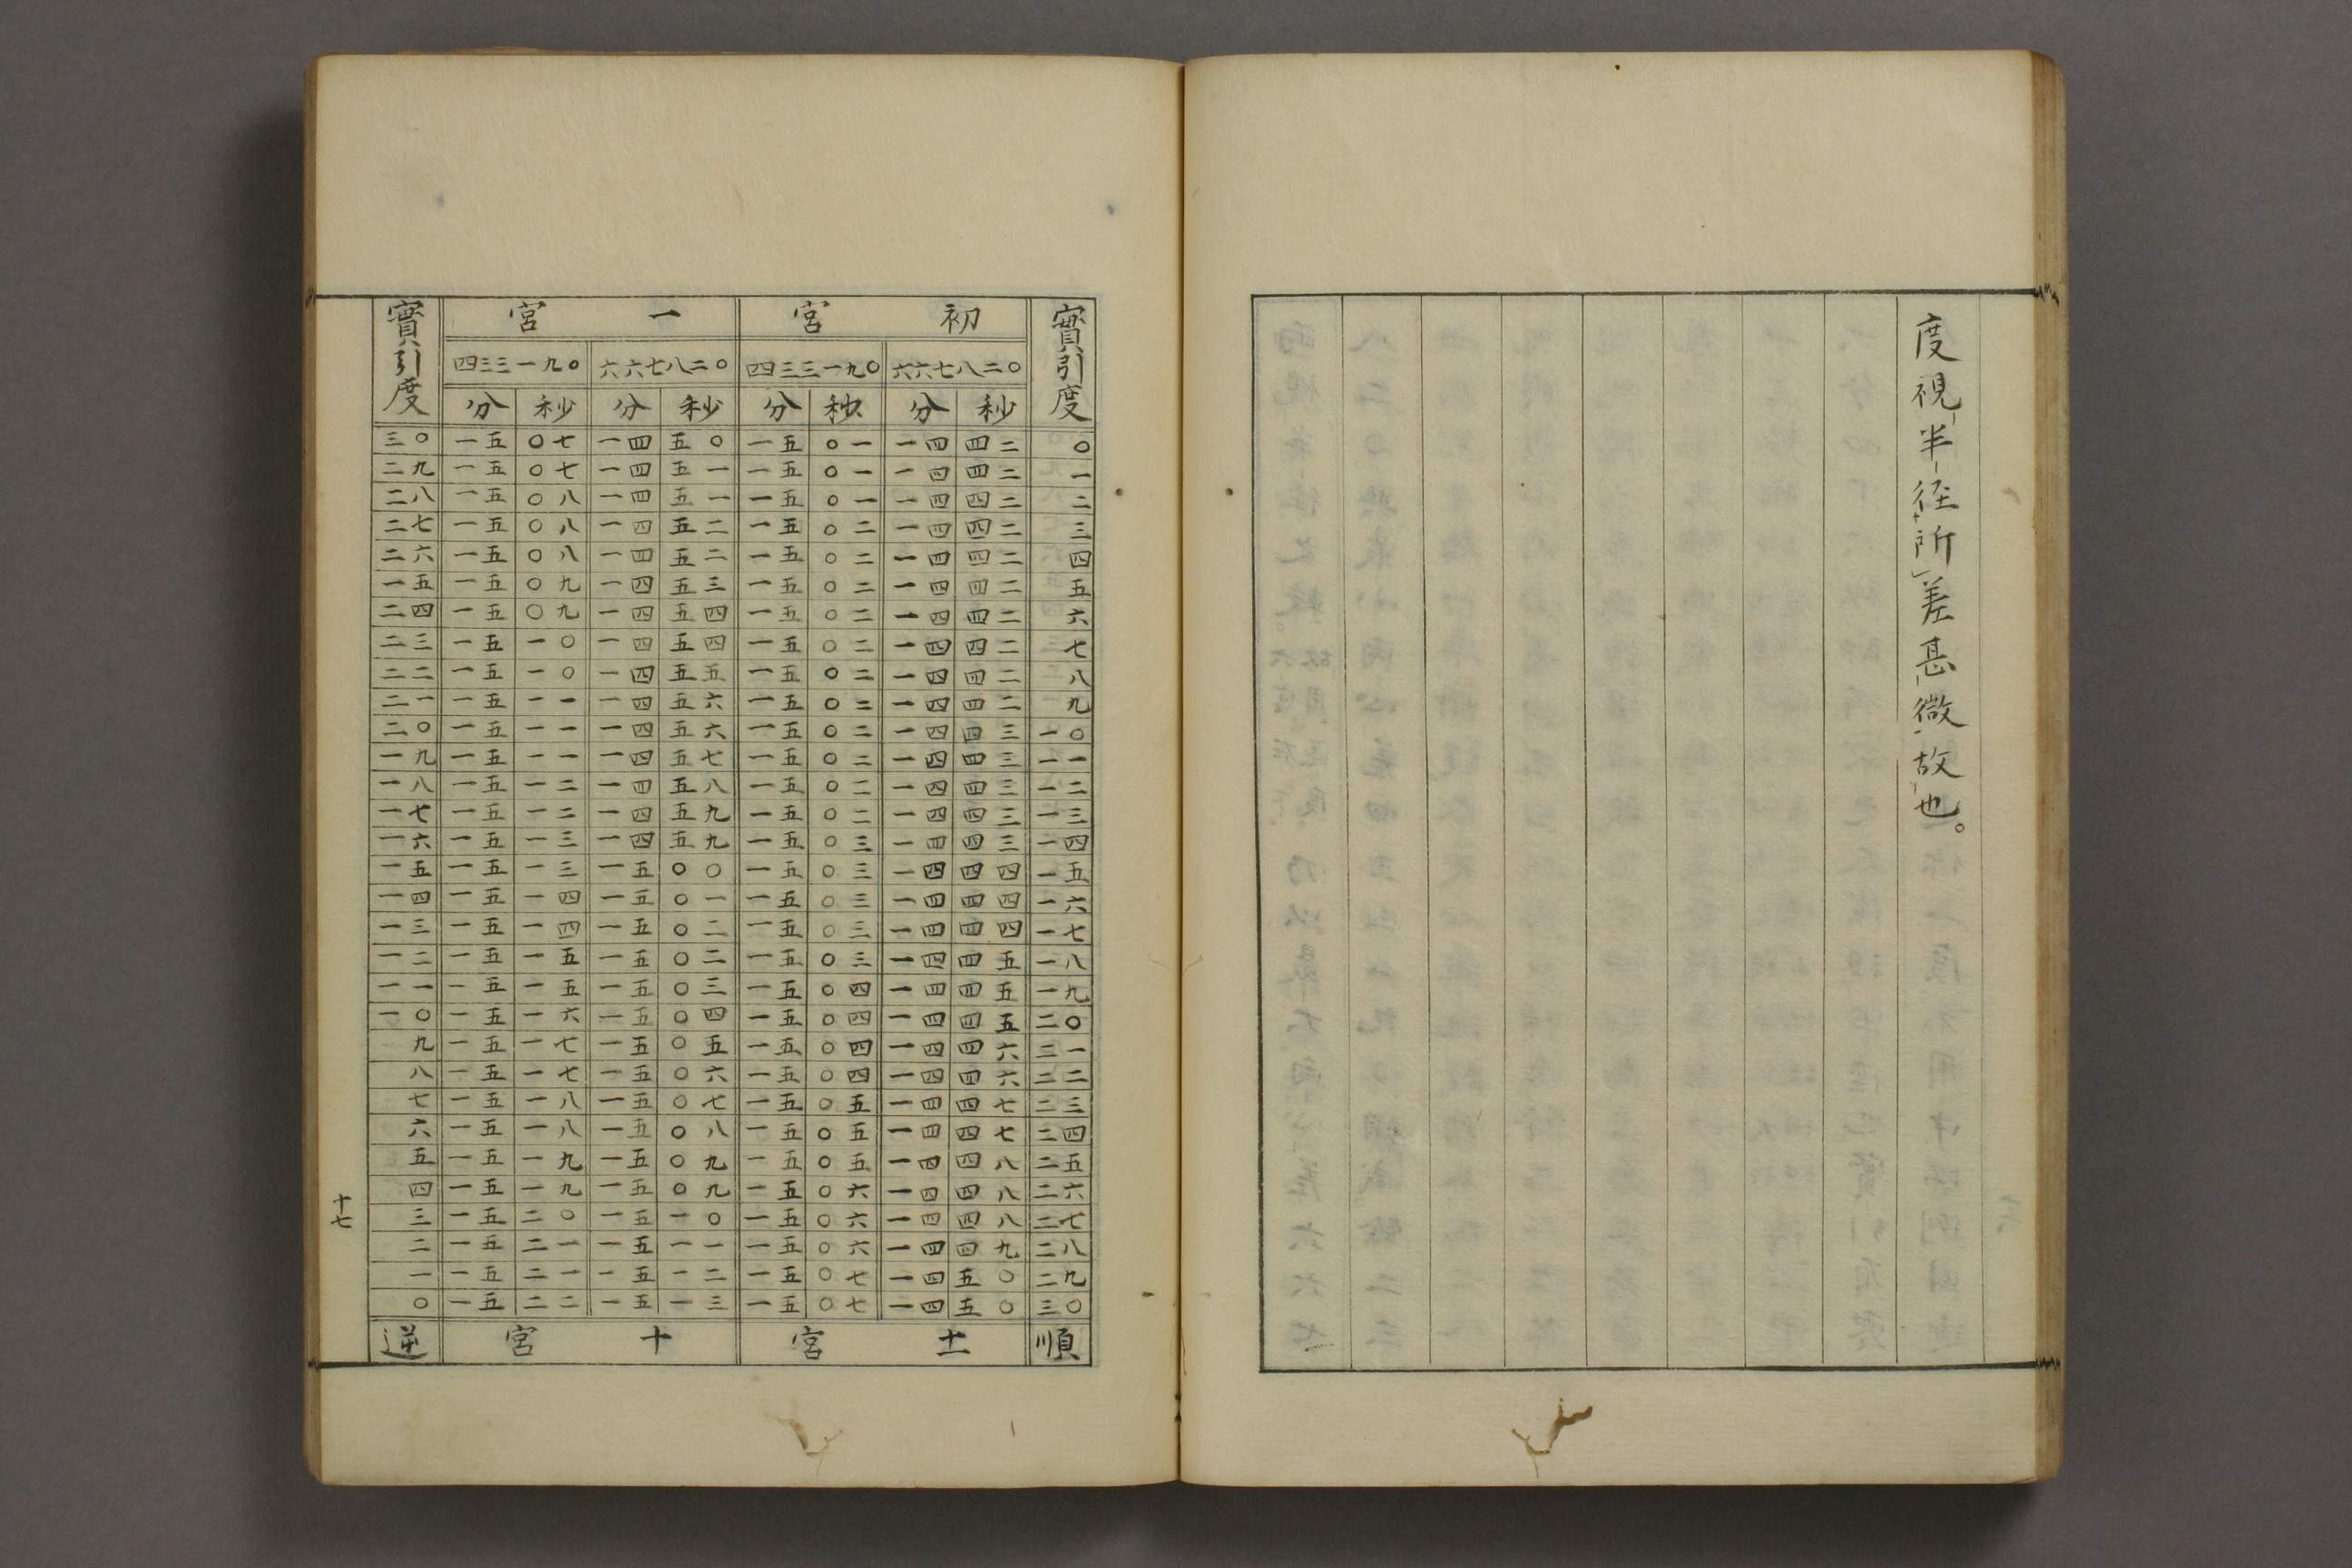 度視半径所差甚微故也。
實引度 初宮 一宮 實引度
四三三一九〇 六六七八二〇 四三三一九〇 六六七八二〇
分 秒 分 秒 分 秒 分 秒
三〇 一五 〇七 一四 五〇 一五 〇一 一四 四二 〇
二九 一五 〇七 一四 五一 一五 〇一 一四 四二 一
二八 一五 〇八 一四 五一 一五 〇一 一四 四二 二
二七 一五 〇八 一四 五二 一五 〇二 一四 四二 三
二六 一五 〇八 一四 五二 一五 〇二 一四 四二 四
一五 一五 〇九 一四 五三 一五 〇二 一四 四二 五
二四 一五 〇九 一四 五四 一五 〇二 一四 四二 六
二三 一五 一〇 一四 五四 一五 〇二 一四 四二 七
二二 一五 一〇 一四 五五 一五 〇二 一四 四二 八
二一 一五 一一 一四 五六 一五 〇二 一四 四二 九
二〇 一五 一一 一四 五六 一五 〇二 一四 四三 一〇
一九 一五 一一 一四 五七 一五 〇二 一四 四三 一一
一八 一五 一二 一四 五八 一五 〇二 一四 四三 一二
一七 一五 一二 一四 五九 一五 〇二 一四 四三 一三
一六 一五 一三 一四 五九 一五 〇三 一四 四三 一四
一五 一五 一三 一五 〇〇 一五 〇三 一四 四四 一五
一四 一五 一四 一五 〇一 一五 〇三 一四 四四 一六
一三 一五 一四 一五 〇二 一五 〇三 一四 四四 一七
一二 一五 一五 一五 〇二 一五 〇三 一四 四五 一八
一一 一五 一五 一五 〇三 一五 〇四 一四 四五 一九
一〇 一五 一六 一五 〇四 一五 〇四 一四 四五 二〇
九 一五 一七 一五 〇五 一五 〇四 一四 四六 二一
八 一五 一七 一五 〇六 一五 〇四 一四 四六 二二
七 一五 一八 一五 〇七 一五 〇五 一四 四七 二三
六 一五 一八 一五 〇八 一五 〇五 一四 四七 二四
五 一五 一九 一五 〇九 一五 〇五 一四 四八 二五
四 一五 一九 一五 〇九 一五 〇六 一四 四八 二六
三 一五 二〇 一五 一〇 一五 〇六 一四 四八 二七
二 一五 二一 一五 一一 一五 〇六 一四 四九 二八
一 一五 二一 一五 一二 一五 〇七 一四 五〇 二九
〇 一五 二二 一五 一三 一五 〇七 一四 五〇 三〇
順 十一宮 十宮 逆
十七